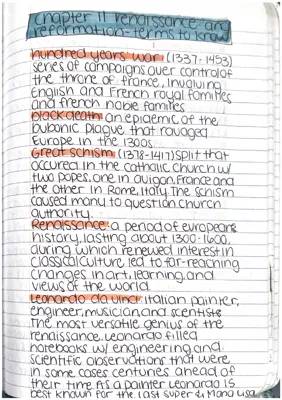 chapter 11 renaissance and
reformation-terms to know
hundred years' war (1337-1453)
series of campaigns over control of
the throne of france, involving
English and French royal families
and french noble families
black death: an epidemic of the
bubonic plague that ravaged
Europe in the 1300s.
Great schism (1378-1417) split that
occured in the catholic church w/
two popes, one in avigon, France and
the other in Rome, Italy. The schism
caused many to question church
authority.
Renaissance: a period of european
history, lasting about 1300-1600,
during which renewed interest in
classical culture led to far-reaching
changes in art, learning, and
views of the world
Leonardo da vinci: italian painter,
engineer, musician and scientist
The most versatile genius of the
renaissance. Leonardo filled
notebooks w/ engineering and
scientific observations that were
in some cases centuries ahead of
their time As a painter Leonardo is
best known for the last super & Mona Lisa